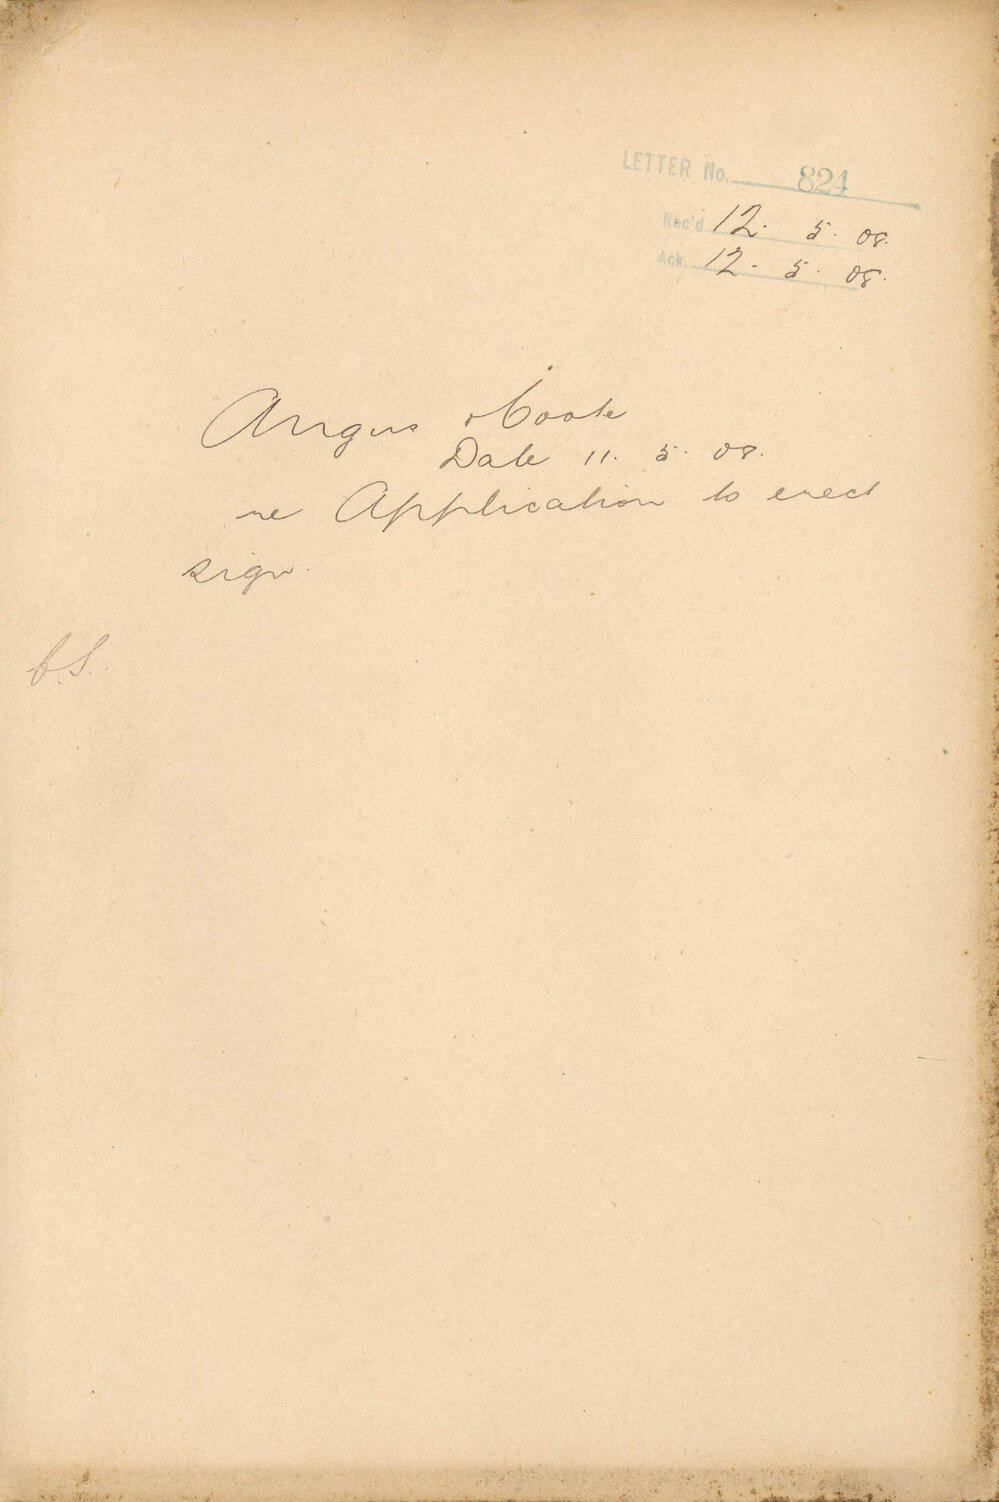 LETTER No. 824
Rec'd 12. 5. 08.
Ack. 12. 5. 08.
Angus & Coote
Date 11. 5. 08.
re Application to erect
sign.
C.S.